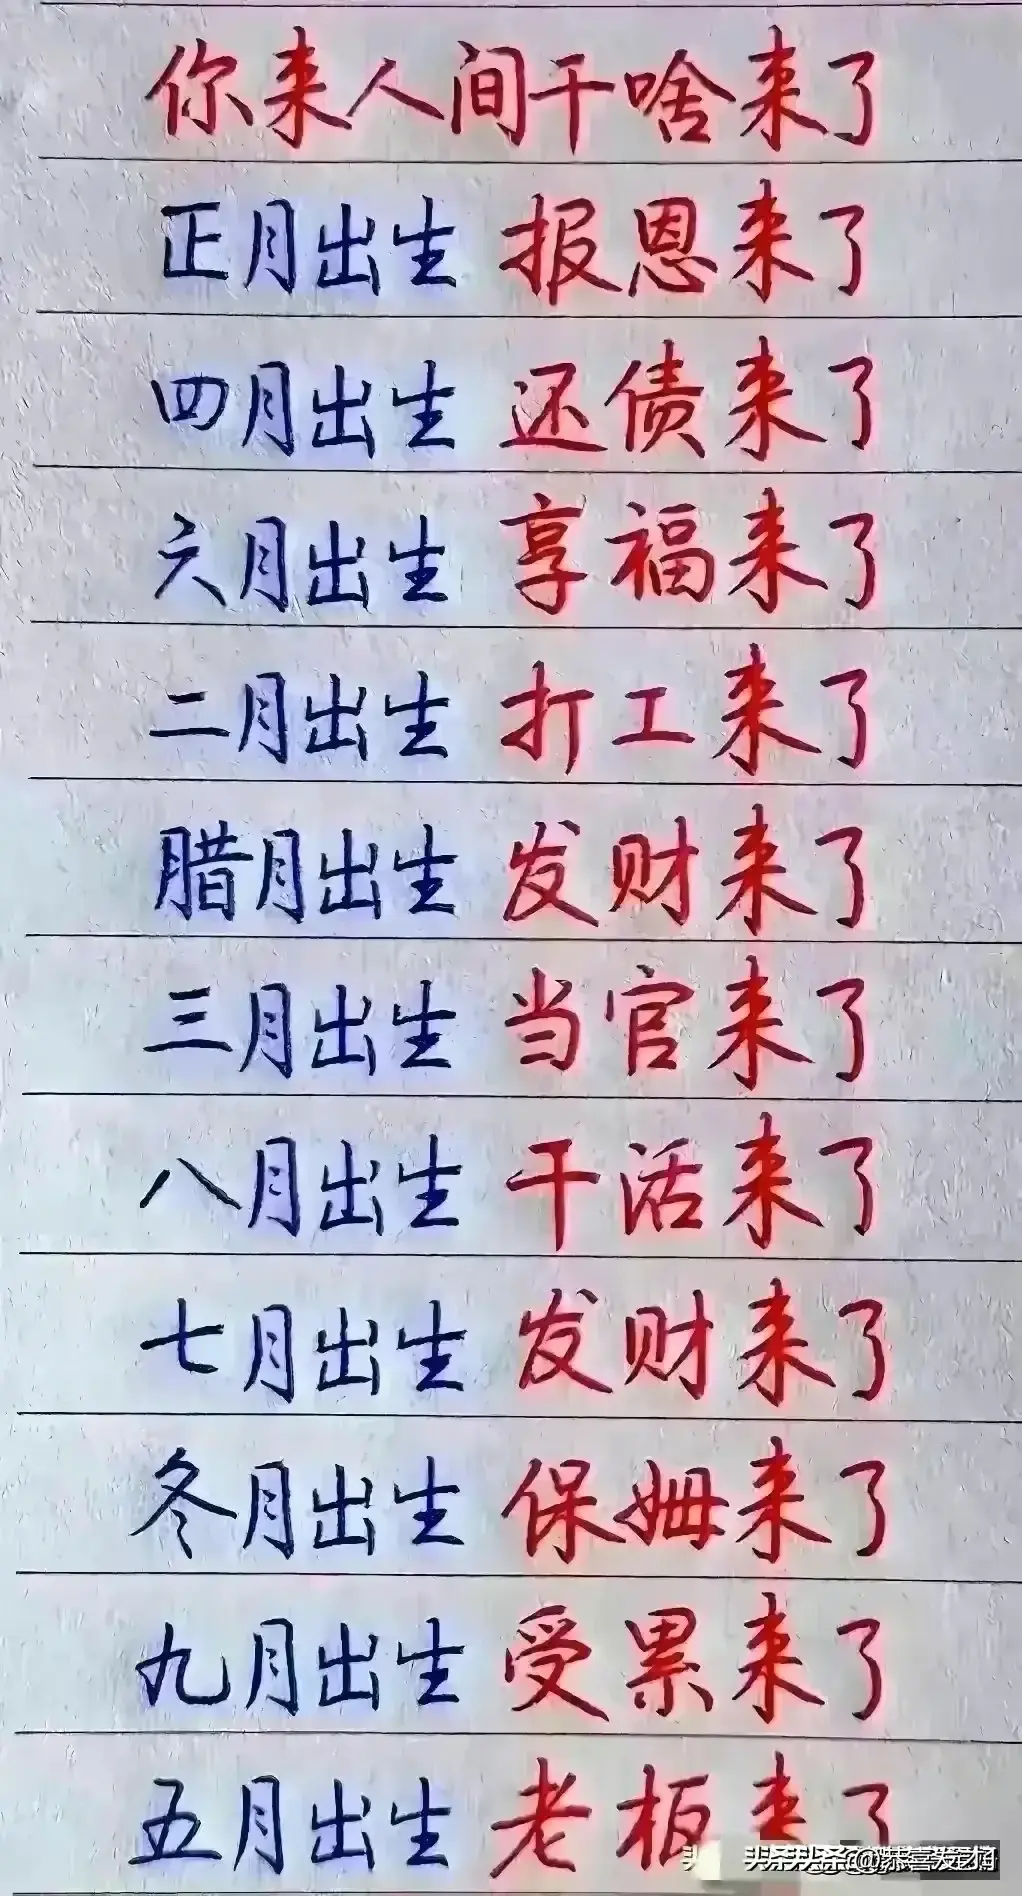 你来人间干啥来了
正月出生 报恩来了
四月出生 还债来了
六月出生 享福来了
二月出生 打工来了
腊月出生 发财来了
三月出生 当官来了
八月出生 干活来了
七月出生 发财来了
冬月出生 保姆来了
九月出生 受累来了
五月出生 老板来了
头条 @恭喜发财